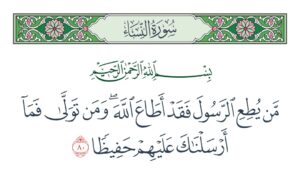 سُورَةُ النِّسَاءِ
بِسْمِ اللَّهِ الرَّحْمَٰنِ الرَّحِيمِ
مَّن يُطِعِ الرَّسُولَ فَقَدْ أَطَاعَ اللَّهَ ۖ وَمَن تَوَلَّىٰ فَمَآ
أَرْسَلْنَاكَ عَلَيْهِمْ حَفِيظًا ٨٠